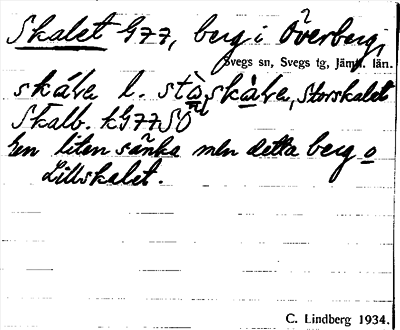 Skalet G77, berg i Överberg,
Svegs sn, Svegs tg, Jämtl. län.
l. Storskalet
Skalb. kG77SO
En liten sänka men detta berg o
Lillskalet.
C. Lindberg 1934.